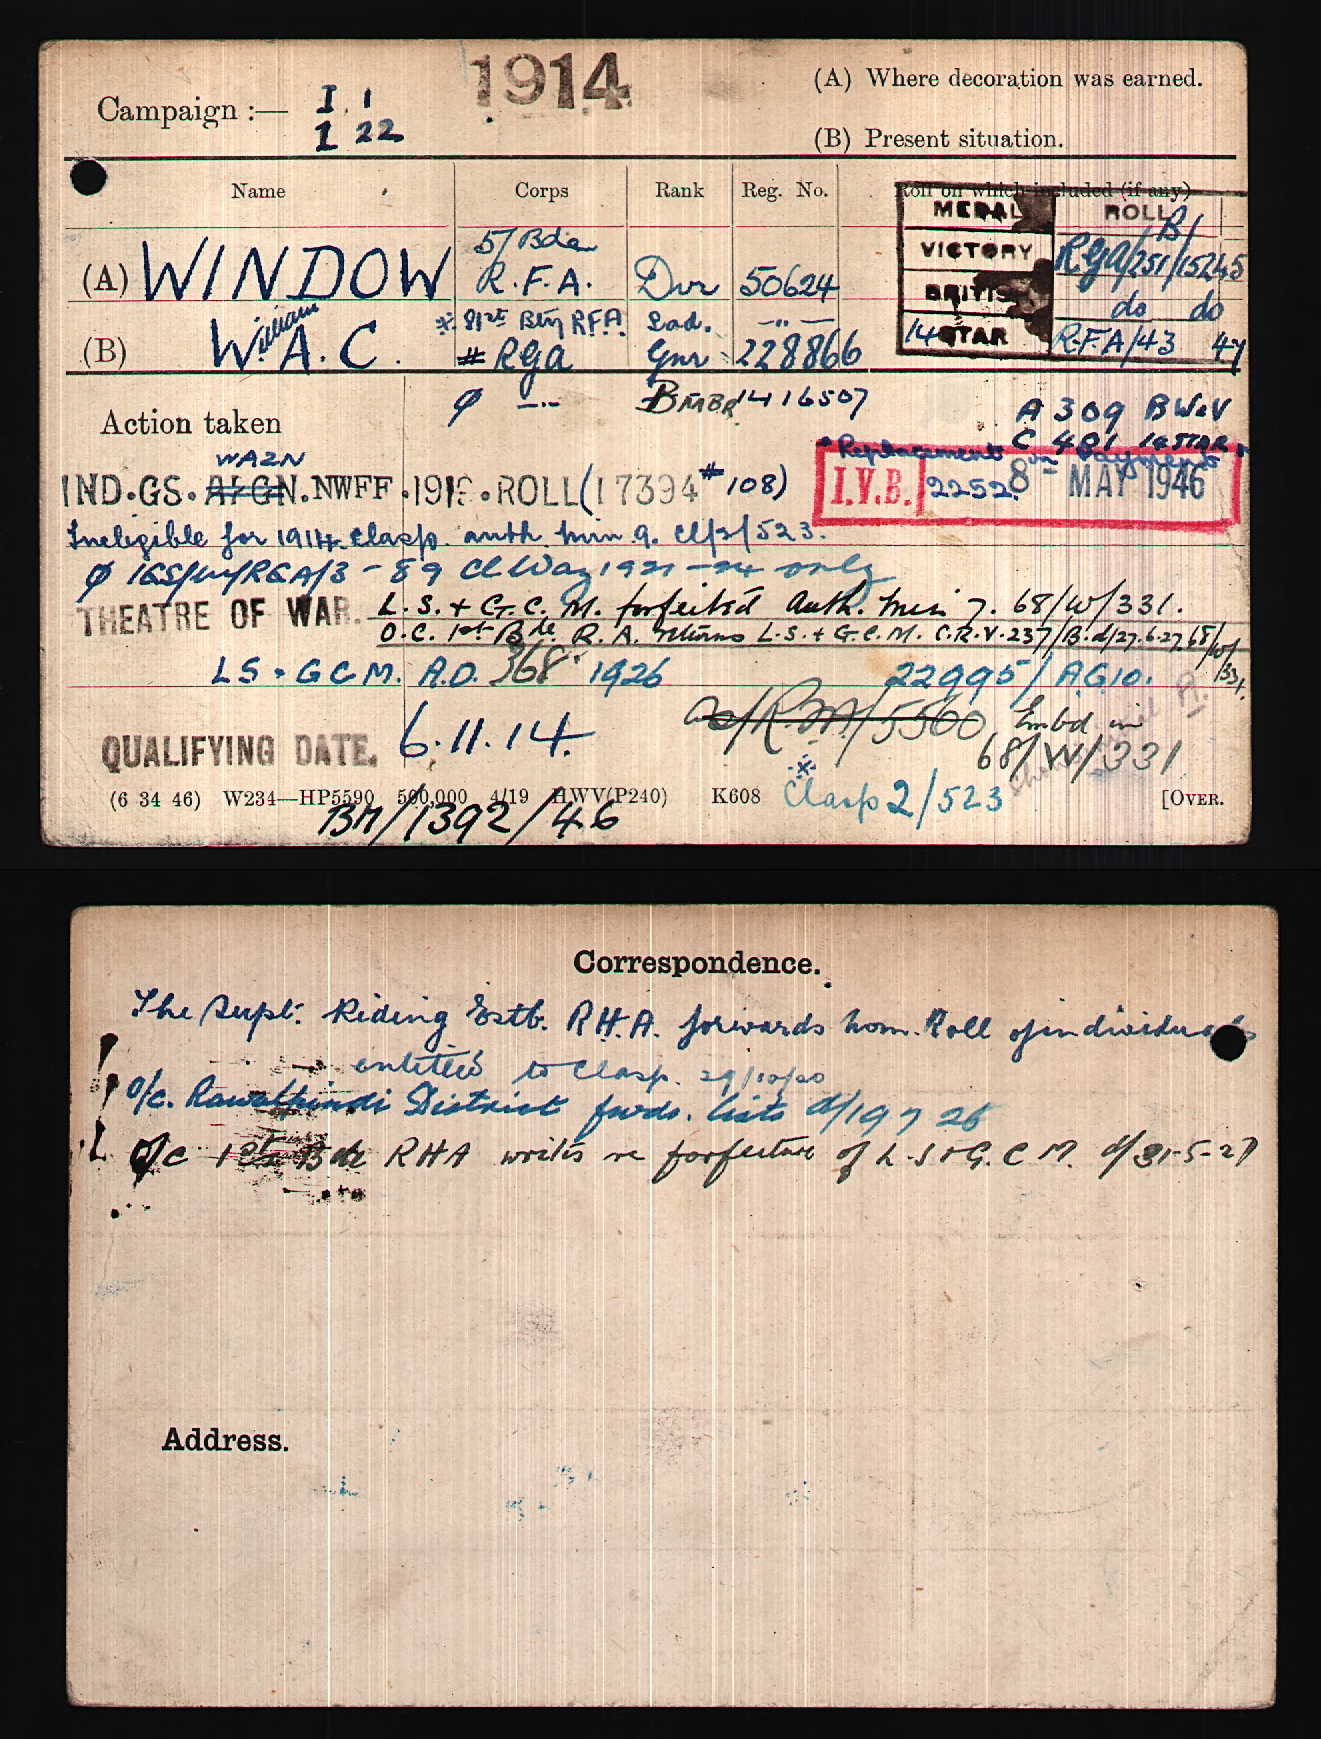 1914
(A) Where decoration was earned.
Campaign :— I. 1
I 22
(B) Present situation.
Name Corps Rank Reg. No. Roll on which included (if any)
MEDAL ROLL
B1
5/Bde
(A) WINDOW R.F.A. Dvr 50624
VICTORY RGA/251/15245
BRITISH do do
William
* 81st Bty RFA Sad. —"—
(B) W. A. C. # RGA Gnr 228866
14 STAR R.F.A/43 47
φ —"— BMBR 1416507
A 309 BW&V
Action taken
C 401 14 STAR
WAZN
* Replacements on Payment *
IND.GS. AFGN. NWFF. 1919. ROLL(17394 # 108)
I.V.B. 2252. 8 MAY 1946
Ineligible for 1914 Clasp. auth min 9. Cl/2/523.
φ IGS/W/RGA/3 - 89 Cl Waz 1921-24 only
THEATRE OF WAR. L.S. + G.C. M. forfeited Auth. Min 7. 68/W/331.
O.C. 1st Bde R.A. returns L.S. + G.C.M. C.R.V. 237/B. d/27.6.27 68/W/331.
LS & GCM. A.O. 368. 1926 22995/AG10.
QUALIFYING DATE. 6.11.14. 5560 Embd in
68/W/331
* Clasp 2/523
(6 34 46) W234—HP5590 500,000 4/19 HWV(P240) K608 [OVER.
BM/1392/46
Correspondence.
The Supt. Riding Estb. R.H.A. forwards nom. Roll of individuals
entitled to Clasp. 29/10/20
O/c. Rawalpindi District fwds. lists d/19 7 26
O/c 1st Bde RHA writes re forfeiture of L.S & G.C M. d/31-5-27
Address.